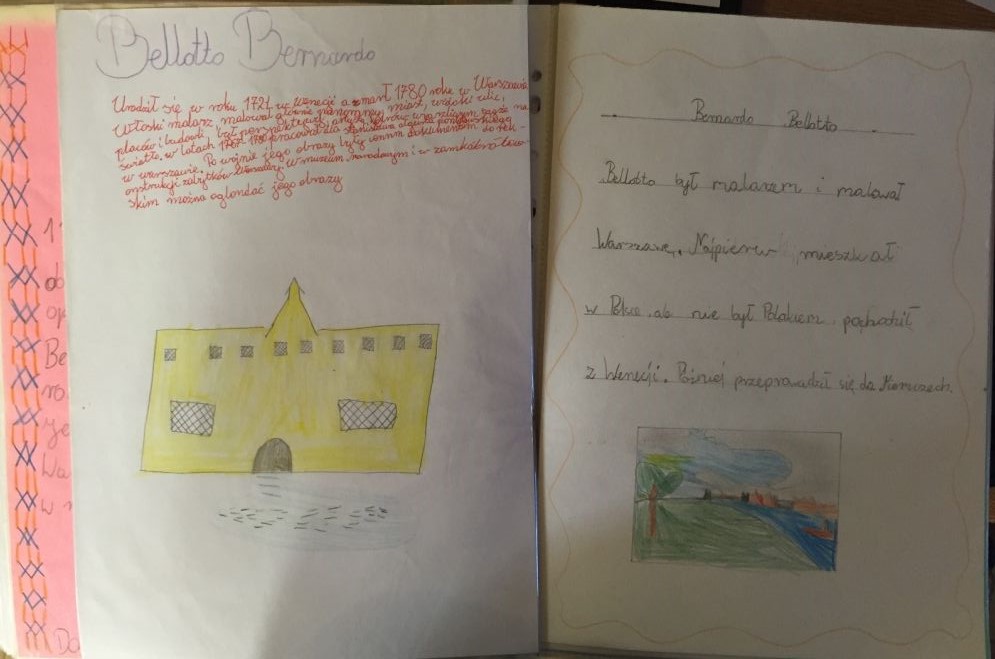 Bellotto Bernardo
Urodził się w roku 1721 w Wenecji a zmarł 1780 roku w Warszawie
Włoski malarz malował głównie panoramy miast, widoki ulic,
placów i budowli. był
światło. w latach 1767-1780 pracował dla
w warszawie. Po wojnie jego obrazy były cennym dokumentem do rek-
onstrukcji zabytków Warszawy w muzeum narodowym i w zamku królew-
skim można oglondać jego obrazy
11
ob
op
Be
ro
że
Wa
w r
Do
Bernardo Bellotto
Bellotto był malarzem i malował
Warszawę. Najpierw mieszkał
w Polsce ale nie był Polakiem pochodził
z Wenecji. Później przeprowadził się do